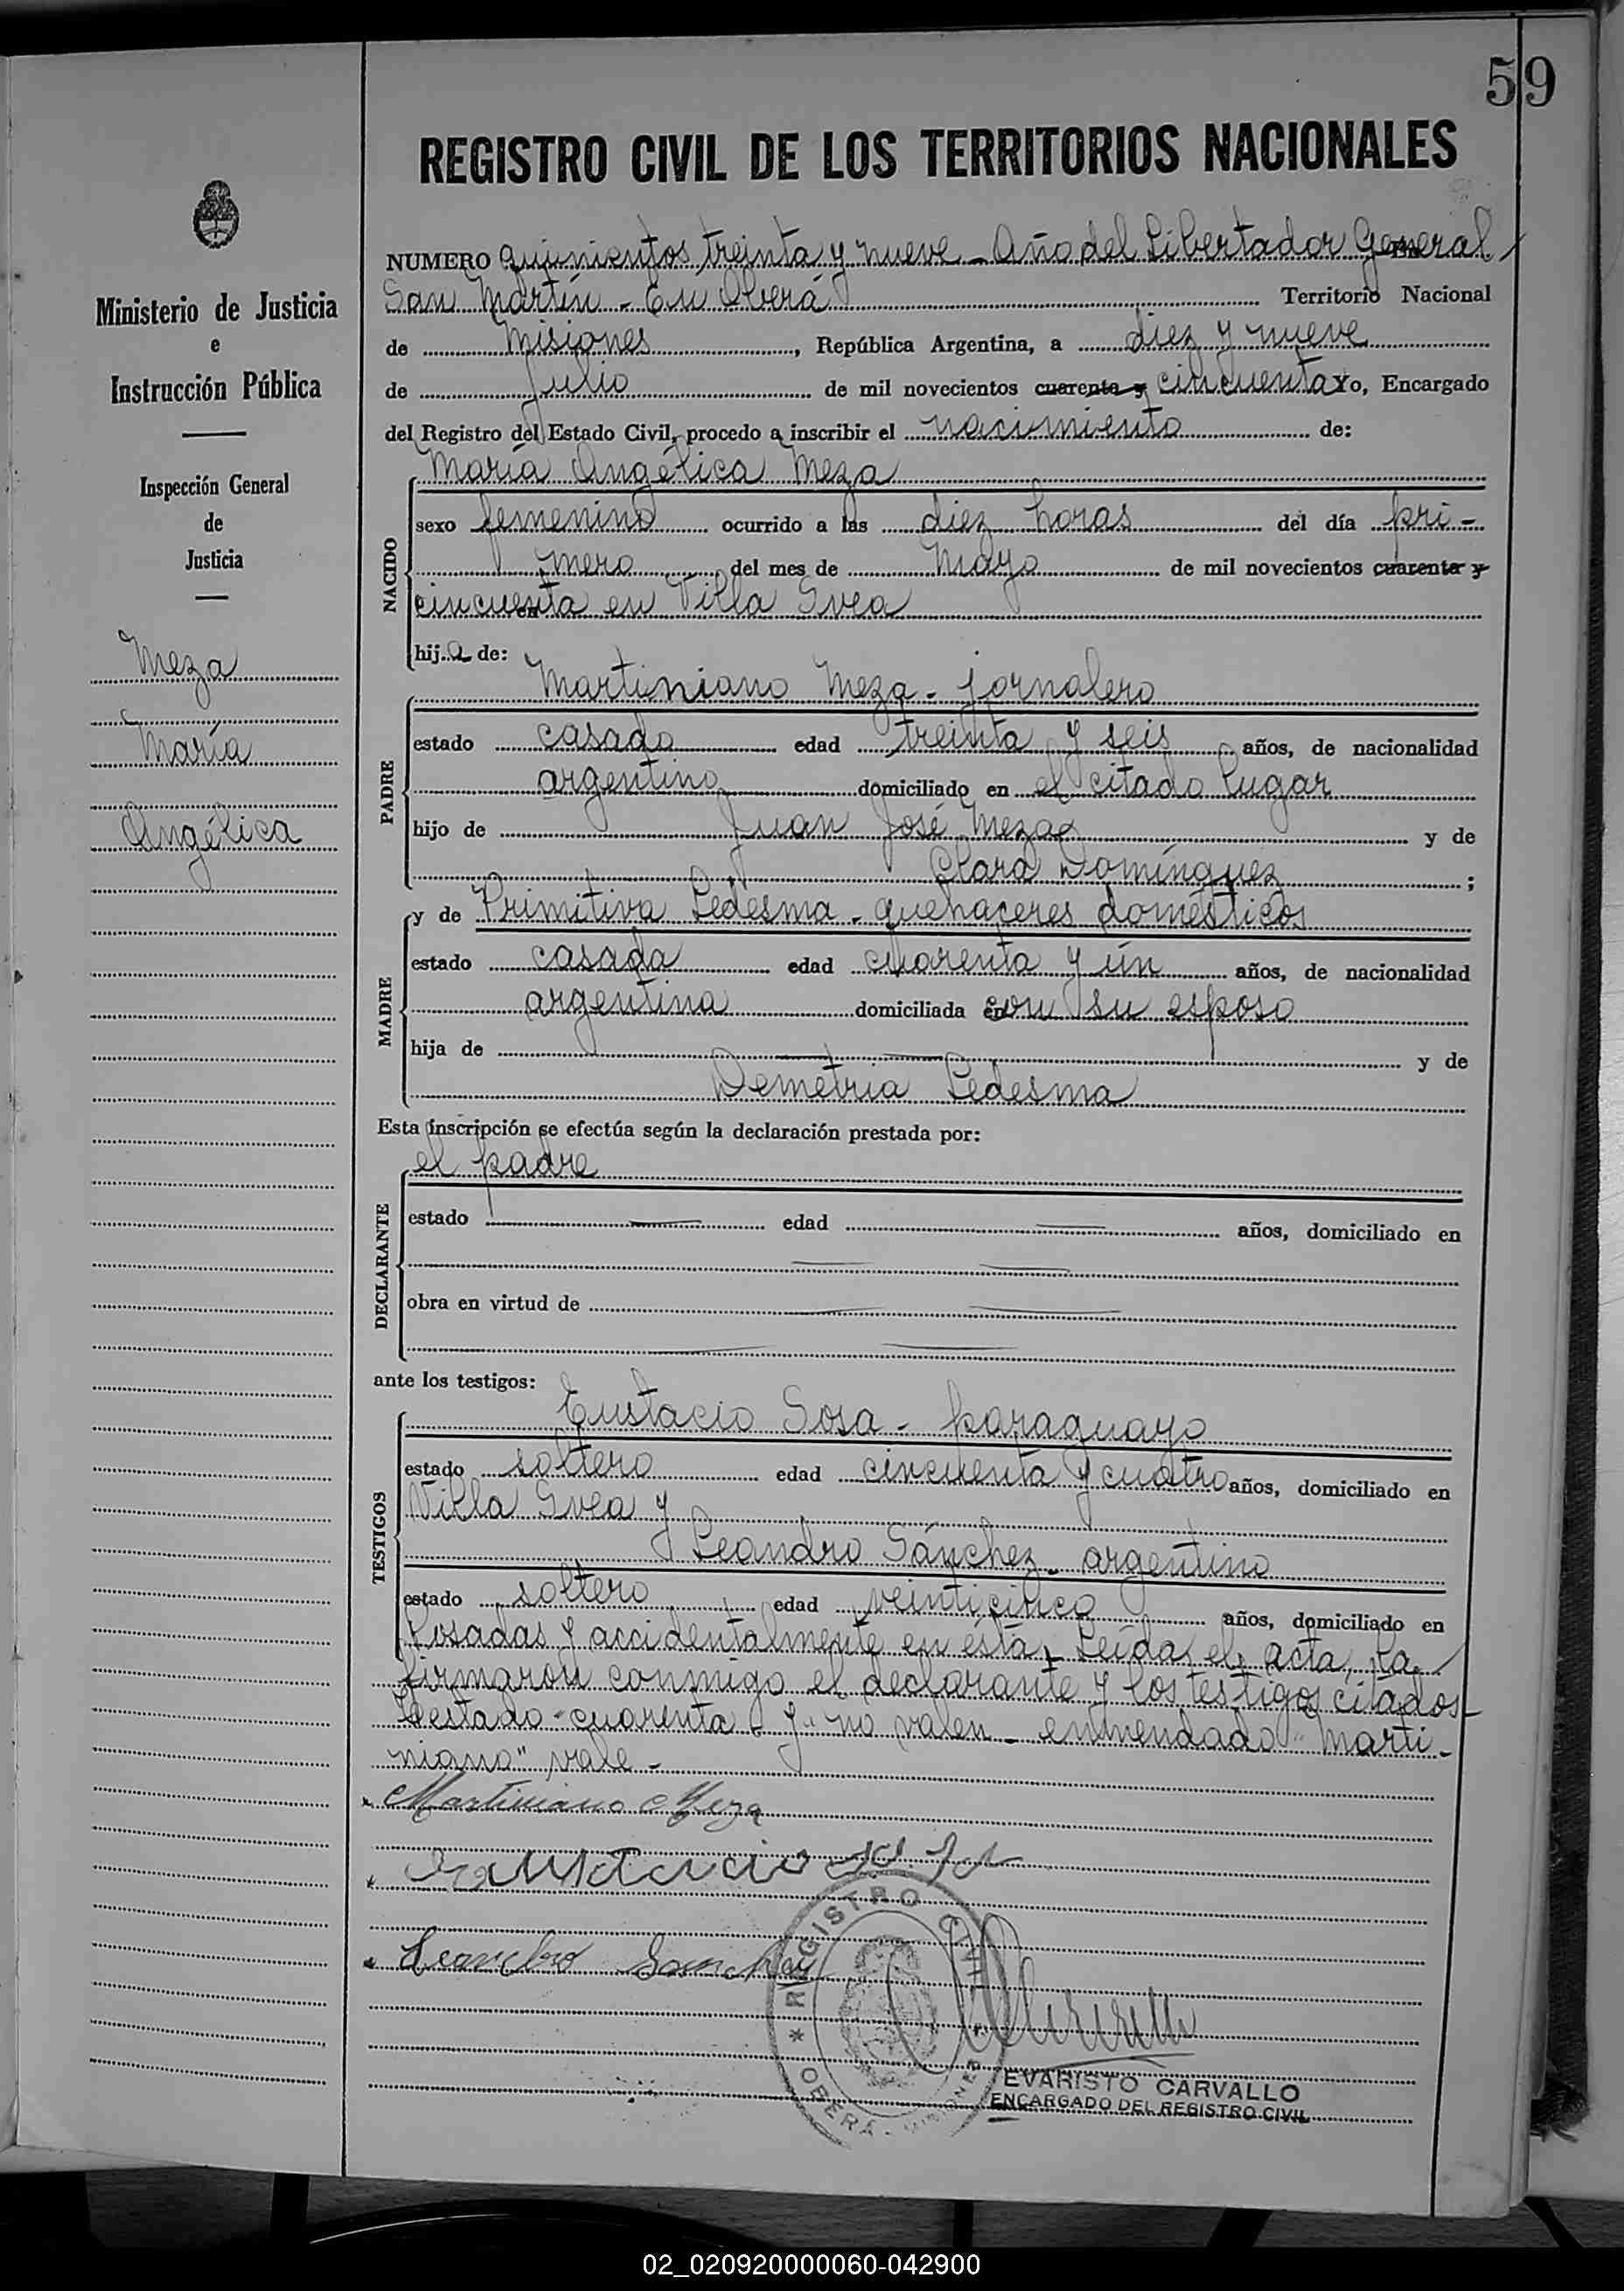 59
REGISTRO CIVIL DE LOS TERRITORIOS NACIONALES
Ministerio de Justicia
e
Instrucción Pública
Inspección General
de
Justicia
Meza
María
Angélica
NUMERO quinientos treinta y nueve - Año del Libertador General
San Martín - En Oberá Territorio Nacional
de Misiones, República Argentina, a diez y nueve
de Julio de mil novecientos cuarenta y cincuenta Yo, Encargado
del Registro del Estado Civil, procedo a inscribir el nacimiento de:
María Angélica Meza
NACIDO
sexo femenino ocurrido a las diez horas del día pri-
mero del mes de Mayo de mil novecientos cuarenta y
cincuenta en Villa Svea
hija de:
Martiniano Meza - jornalero
PADRE
estado casado edad treinta y seis años, de nacionalidad
argentino domiciliado en el citado lugar
hijo de Juan José Meza y de
Clara Domínguez ;
y de Primitiva Ledesma - quehaceres domésticos
MADRE
estado casada edad cuarenta y un años, de nacionalidad
argentina domiciliada en con su esposo
hija de y de
Demetria Ledesma
Esta inscripción se efectúa según la declaración prestada por:
el padre
DECLARANTE
estado edad años, domiciliado en
obra en virtud de
ante los testigos:
Eustacio Sosa - paraguayo
TESTIGOS
estado soltero edad cincuenta y cuatro años, domiciliado en
Villa Svea y
Leandro Sánchez - argentino
estado soltero edad veinticinco años, domiciliado en
Posadas y accidentalmente en ésta, Leída el acta, la
firmaron conmigo el declarante y los testigos citados -
Testado "cuarenta y" no valen - enmendado "Marti-
niano" vale -
Martiniano Meza
Leandro Sanchez
REGISTRO CIVIL
OBERÁ - MISIONES
EVARISTO CARVALLO
ENCARGADO DEL REGISTRO CIVIL
02_020920000060-042900